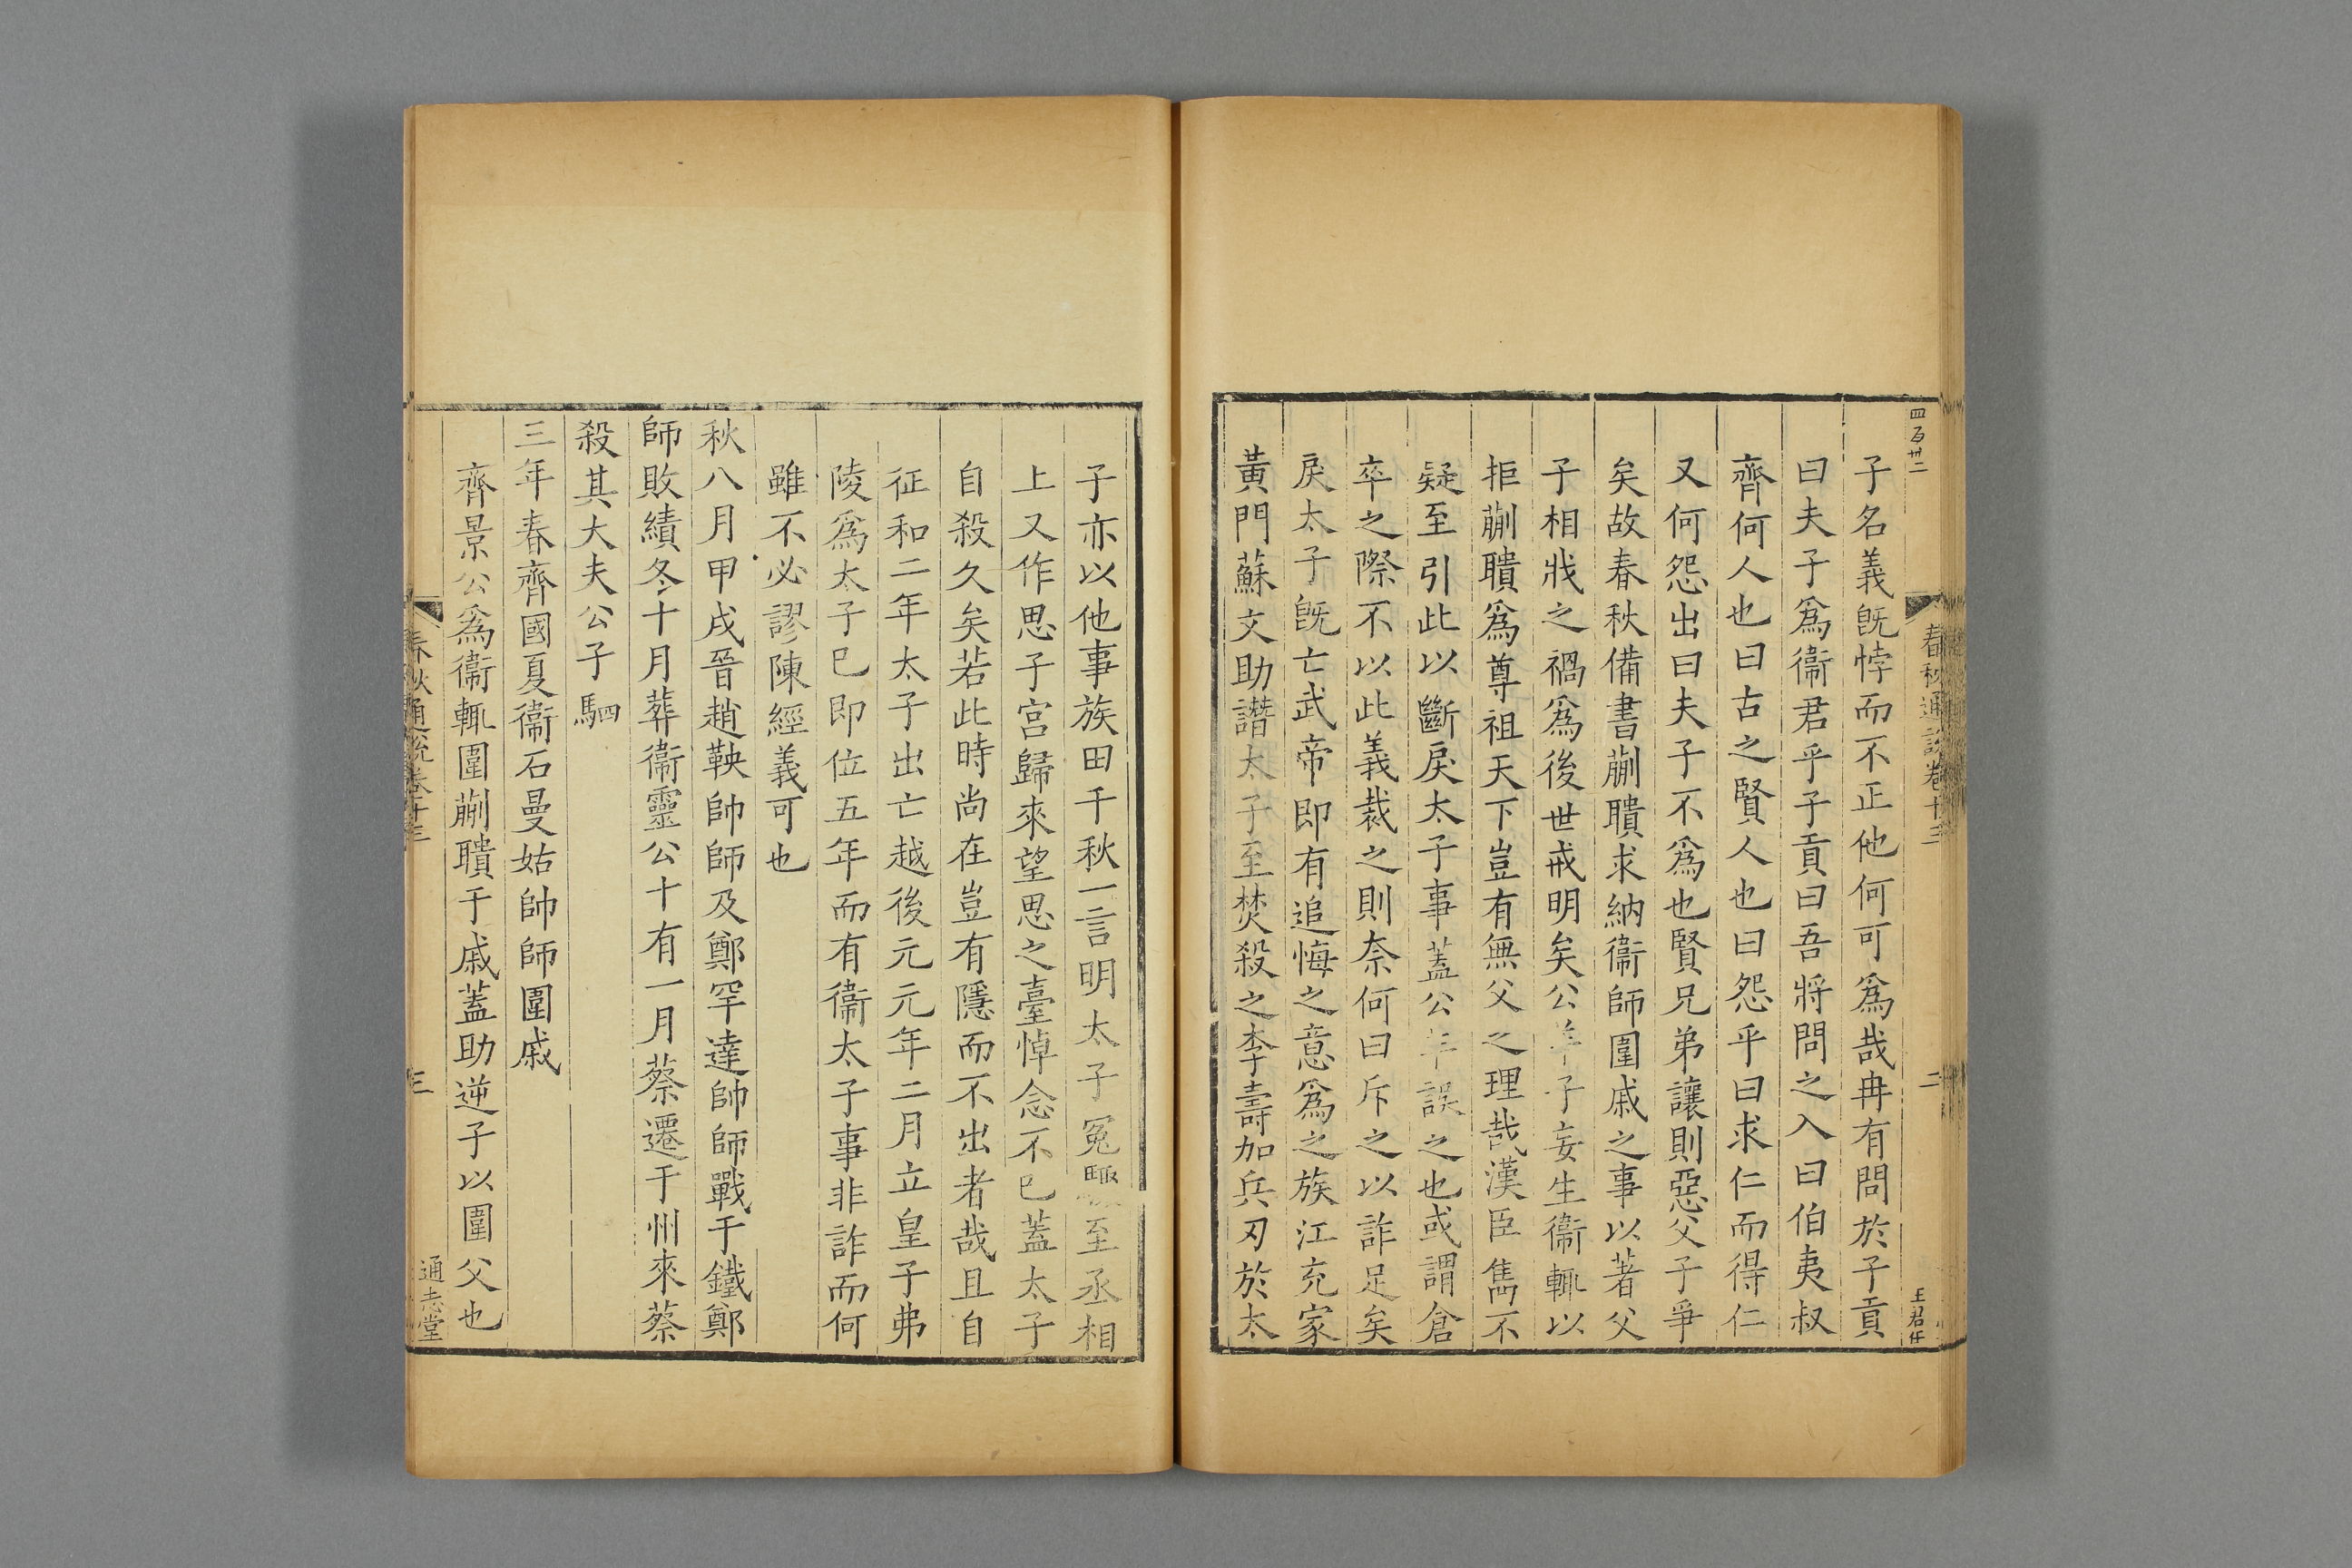 四百卅二
春秋通說卷十三
二
王君任
子名義旣悖而不正他何可爲哉冉有問於子貢
曰夫子爲衞君乎子貢曰吾將問之入曰伯夷叔
齊何人也曰古之賢人也曰怨乎曰求仁而得仁
又何怨出曰夫子不爲也賢兄弟讓則惡父子爭
矣故春秋備書蒯聵求納衞師圍戚之事以著父
子相戕之禍爲後世戒明矣公羊子妄生衞輒以
拒蒯聵爲尊祖天下豈有無父之理哉漢臣雋不
疑至引此以斷戾太子事蓋公羊誤之也或謂倉
卒之際不以此義裁之則柰何曰斥之以詐足矣
戾太子旣亡武帝即有追悔之意爲之族江充家
黃門蘇文助譖太子至焚殺之李壽加兵刃於太
子亦以他事族田千秋一言明太子冤驟至丞相
上又作思子宫歸來望思之臺悼念不已蓋太子
自殺久矣若此時尚在豈有隱而不出者哉且自
征和二年太子出亡越後元元年二月立皇子弗
陵爲太子已即位五年而有衞太子事非詐而何
雖不必謬陳經義可也
秋八月甲戌晉趙鞅帥師及鄭罕達帥師戰于鐵鄭
師敗績冬十月葬衞靈公十有一月蔡遷于州來蔡
殺其大夫公子駟
三年春齊國夏衞石曼姑帥師圍戚
齊景公爲衞輒圍蒯聵于戚蓋助逆子以圍父也
春秋通說卷十三
三
通志堂